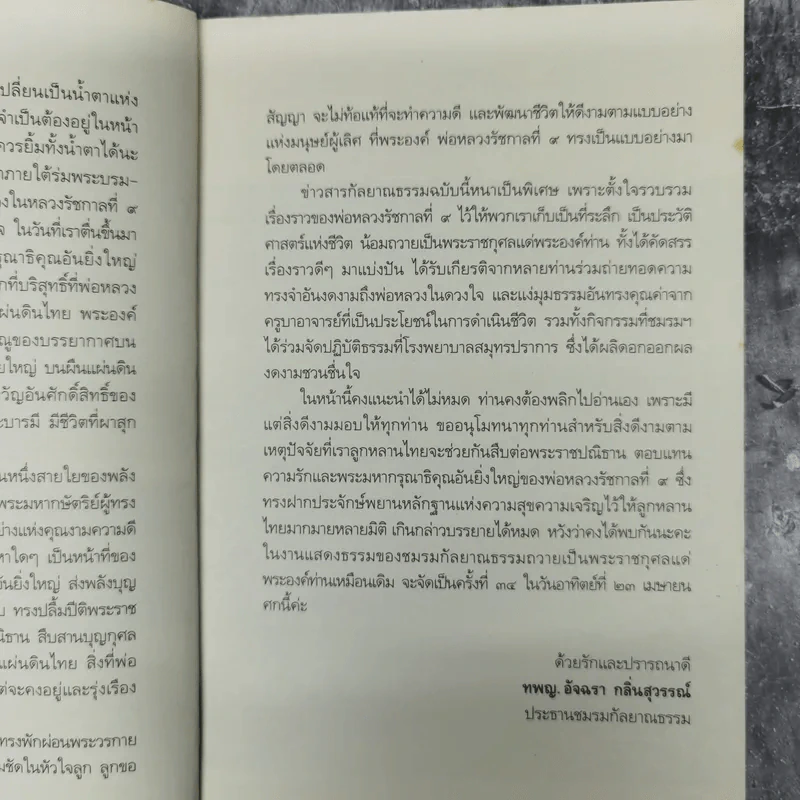 ปลี่ยนเป็นน้ำตาแห่ง
จำเป็นต้องอยู่ในหน้า
ควรยิ้มทั้งน้ำตาได้นะ
าภายใต้ร่มพระบรม-
งในหลวงรัชกาลที่ ๙
จ ในวันที่เราตื่นขึ้นมา
รุณาธิคุณอันยิ่งใหญ่
กที่บริสุทธิ์ที่พ่อหลวง
ผ่นดินไทย พระองค์
ณูของบรรยากาศบน
ยใหญ่ บนผืนแผ่นดิน
วัญอันศักดิ์สิทธิ์ของ
ะบารมี มีชีวิตที่ผาสุก
นหนึ่งสายใยของพลัง
พระมหากษัตริย์ผู้ทรง
ย่างแห่งคุณงามความดี
หาใดๆ เป็นหน้าที่ของ
อันยิ่งใหญ่ ส่งพลังบุญ
บ ทรงปลื้มปีติพระราช
ณิธาน สืบสานบุญกุศล
แผ่นดินไทย สิ่งที่พ่อ
ต่จะคงอยู่และรุ่งเรือง
ทรงพักผ่อนพระวรกาย
มชัดในหัวใจลูก ลูกขอ
สัญญา จะไม่ท้อแท้ที่จะทำความดี และพัฒนาชีวิตให้ดีงามตามแบบอย่าง
แห่งมนุษย์ผู้เลิศ ที่พระองค์ พ่อหลวงรัชกาลที่ ๙ ทรงเป็นแบบอย่างมา
โดยตลอด
ข่าวสารกัลยาณธรรมฉบับนี้หนาเป็นพิเศษ เพราะตั้งใจรวบรวม
เรื่องราวของพ่อหลวงรัชกาลที่ ๙ ไว้ให้พวกเราเก็บเป็นที่ระลึก เป็นประวัติ
ศาสตร์แห่งชีวิต น้อมถวายเป็นพระราชกุศลแด่พระองค์ท่าน ทั้งได้คัดสรร
เรื่องราวดีๆ มาแบ่งปัน ได้รับเกียรติจากหลายท่านร่วมถ่ายทอดความ
ทรงจำอันงดงามถึงพ่อหลวงในดวงใจ และแง่มุมธรรมอันทรงคุณค่าจาก
ครูบาอาจารย์ที่เป็นประโยชน์ในการดำเนินชีวิต รวมทั้งกิจกรรมที่ชมรมฯ
ได้ร่วมจัดปฏิบัติธรรมที่โรงพยาบาลสมุทรปราการ ซึ่งได้ผลิดอกออกผล
งดงามชวนชื่นใจ
ในหน้านี้คงแนะนำได้ไม่หมด ท่านคงต้องพลิกไปอ่านเอง เพราะมี
แต่สิ่งดีงามมอบให้ทุกท่าน ขออนุโมทนาทุกท่านสำหรับสิ่งดีงามตาม
เหตุปัจจัยที่เราลูกหลานไทยจะช่วยกันสืบต่อพระราชปณิธาน ตอบแทน
ความรักและพระมหากรุณาธิคุณอันยิ่งใหญ่ของพ่อหลวงรัชกาลที่ ๙ ซึ่ง
ทรงฝากประจักษ์พยานหลักฐานแห่งความสุขความเจริญไว้ให้ลูกหลาน
ไทยมากมายหลายมิติ เกินกล่าวบรรยายได้หมด หวังว่าคงได้พบกันนะคะ
ในงานแสดงธรรมของชมรมกัลยาณธรรมถวายเป็นพระราชกุศลแด่
พระองค์ท่านเหมือนเดิม จะจัดเป็นครั้งที่ ๓๔ ในวันอาทิตย์ที่ ๒๓ เมษายน
ศกนี้ค่ะ
ด้วยรักและปรารถนาดี
ทพญ. อัจฉรา กลิ่นสุวรรณ์
ประธานชมรมกัลยาณธรรม